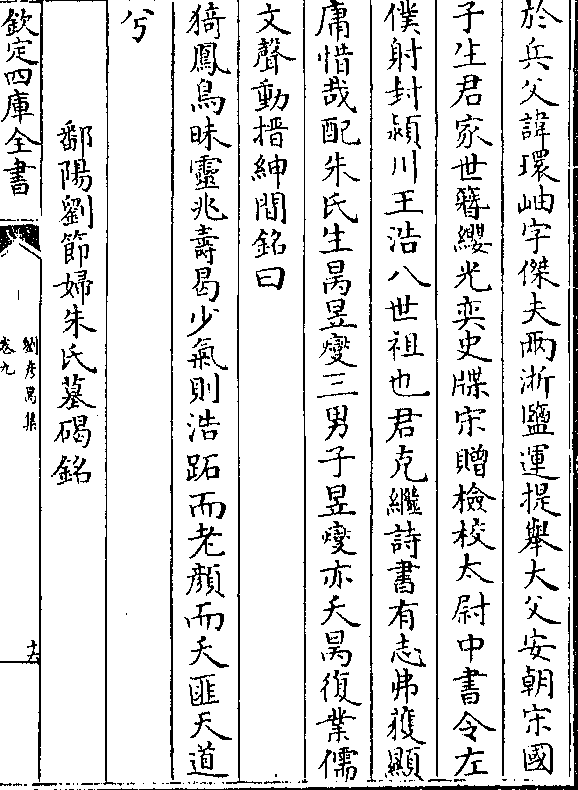 於兵父諱環岫字傑夫兩浙鹽運提舉大父安朝宋國
子生君家世簪纓光奕史牒宋贈檢校太尉中書令左
僕射封潁川王浩八世祖也君克繼詩書有志弗獲顯
庸惜哉配朱氏生昺昱燮三男子昱燮亦夭昺復業儒
文聲動搢紳間銘曰
猗鳳鳥昧靈兆壽曷少氣則浩跖而老顏而夭匪天道
兮
鄱陽劉節婦朱氏墓碣銘
欽定四庫全書
劉彥昺集
卷九
十六